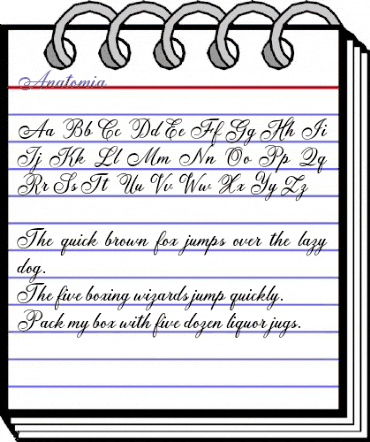 Anatomia
Aa Bb Cc Dd Ee Ff Gg Hh Ii
Jj Kk Ll Mm Nn Oo Pp Qq
Rr Ss Tt Uu Vv Ww Xx Yy Zz
The quick brown fox jumps over the lazy
dog.
The five boxing wizards jump quickly.
Pack my box with five dozen liquor jugs.